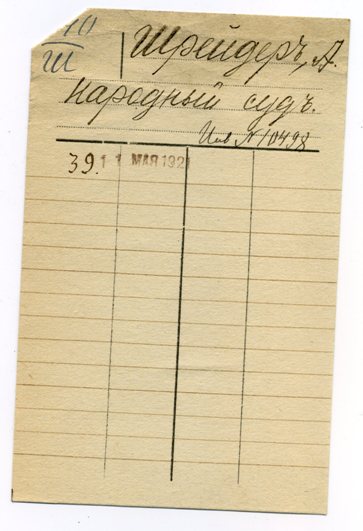 10
III
Шрейдеръ, А.
народный судъ.
Инв № 10498
39. 11 МАЯ 192